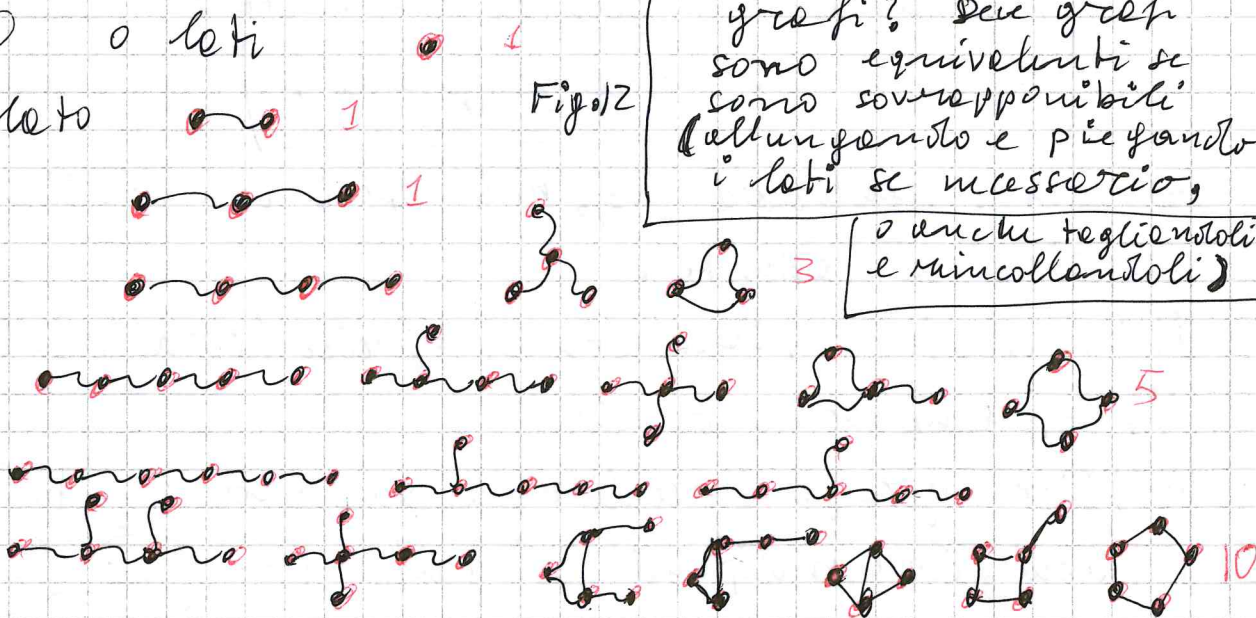 0 lati 1
lato 1
Fig. 12
1
3
5
10
grafi? Due grafi
sono equivalenti se
sono sovrapponibili
(allungando e piegando
i lati se necessario,
o anche tagliandoli
e rincollandoli)